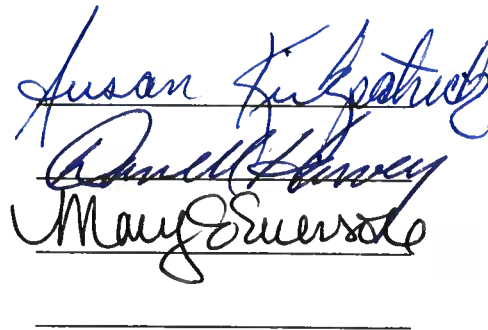 Susan Kirkpatrick
Darrell Harvey
Mary Eversole